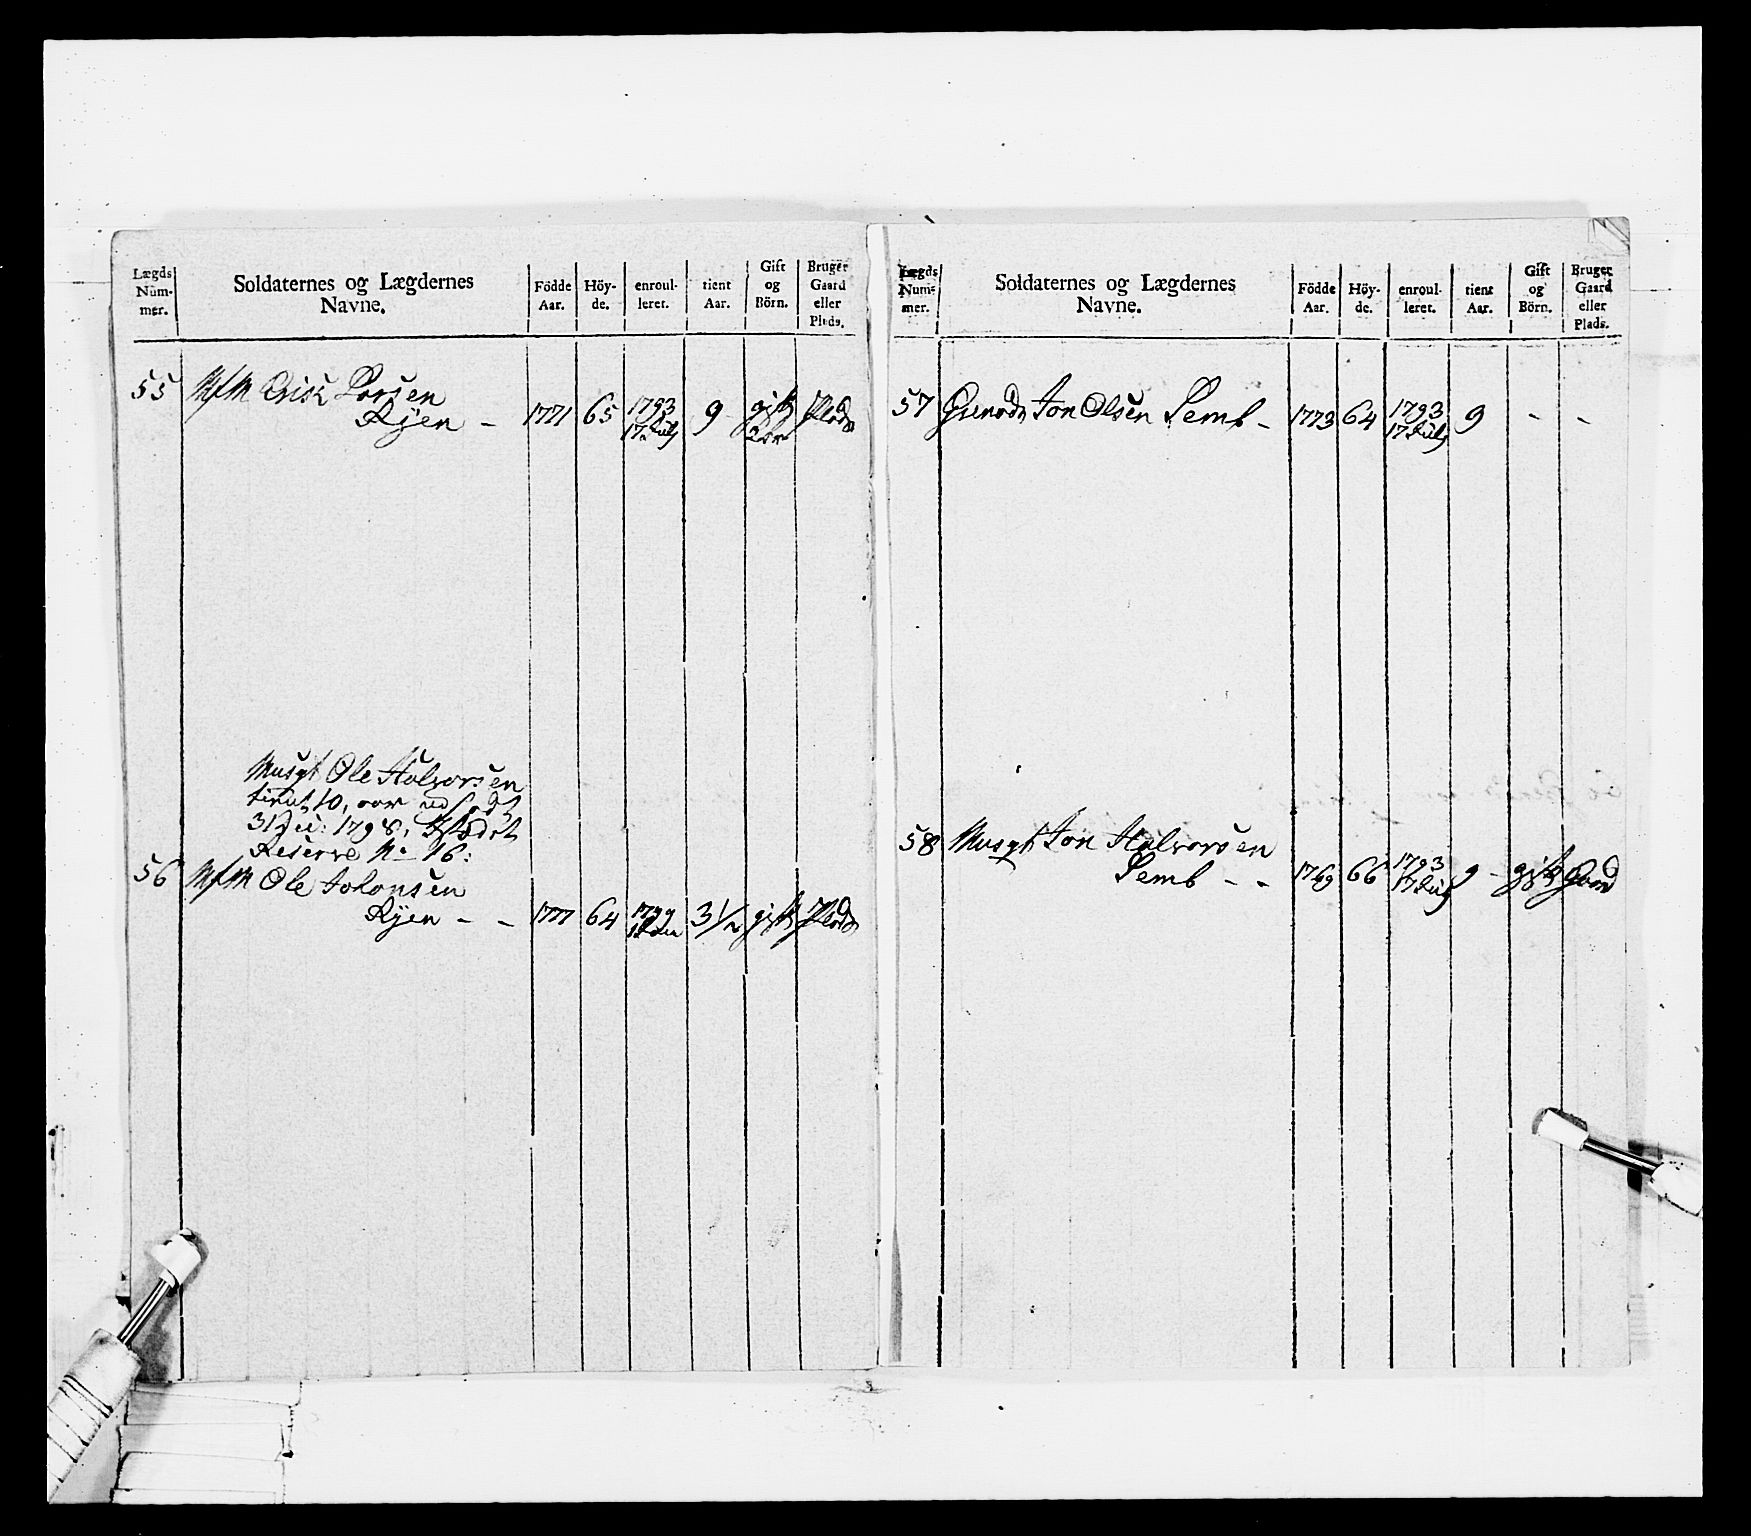 Lægds
Num-
mer.
Soldaternes og Lægdernes
Navne.
Födde
Aar.
Höy-
de.
enroul-
leret.
tient
Aar.
Gift
og
Börn.
Bruger
Gaard
eller
Plads.
55 Erisk Larsen
Ryen - 1771 65 1793 9 gift Plads
17 July 2 Sør
Musqt Ole Halvorsen
tient 10, aar
31 De: 1798,
Reserve No 16:
56 Ole Johansen
Ryen - - 1777 64 1799 3 1/2 gift Plads
Lægds
Num-
mer.
Soldaternes og Lægdernes
Navne.
Födde
Aar.
Höy-
de.
enroul-
leret.
tient
Aar.
Gift
og
Börn.
Bruger
Gaard
eller
Plads.
57 Grenadr Jon Olsen Semb - 1773 64 1793 9 - -
17 July
58 Musqt Jon Halvorsen
Semb - - 1769 66 1793 9 - gift Gaard
17 July